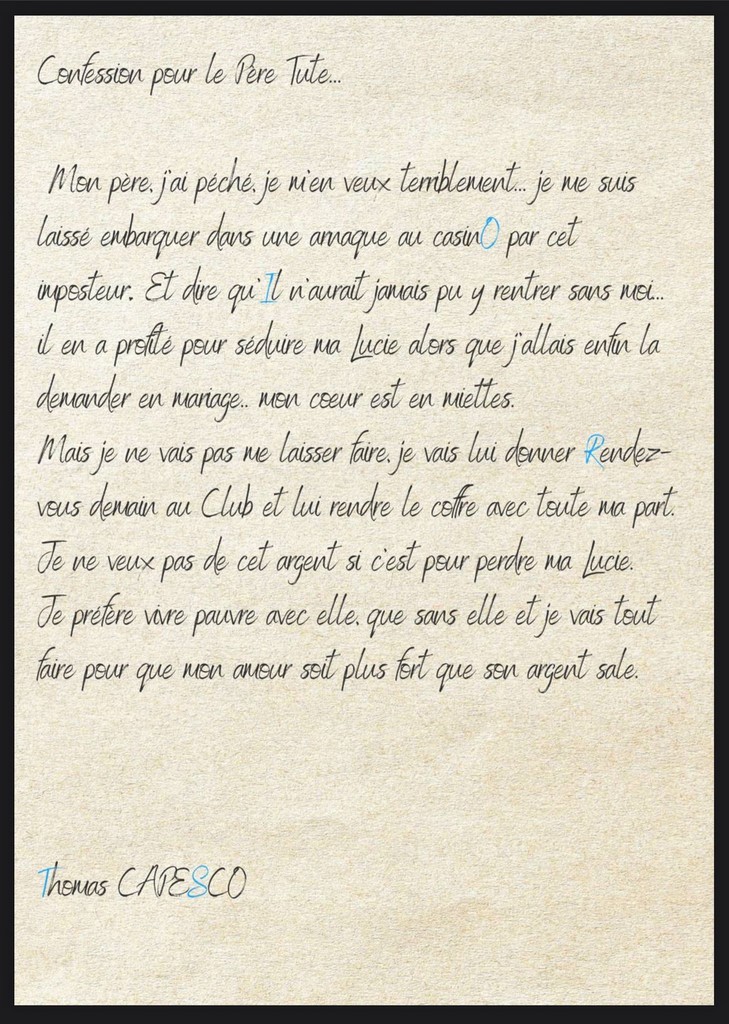 Confession pour le Père Tute...
Mon père, j'ai péché, je m'en veux terriblement... je me suis
laissé embarquer dans une arnaque au casinO par cet
imposteur. Et dire qu'Il n'aurait jamais pu y rentrer sans moi...
il en a profité pour séduire ma Lucie alors que j'allais enfin la
demander en mariage.. mon coeur est en miettes.
Mais je ne vais pas me laisser faire, je vais lui donner Rendez-
vous demain au Club et lui rendre le coffre avec toute ma part.
Je ne veux pas de cet argent si c'est pour perdre ma Lucie.
Je préfère vivre pauvre avec elle, que sans elle et je vais tout
faire pour que mon amour soit plus fort que son argent sale.
Thomas CAPESCO